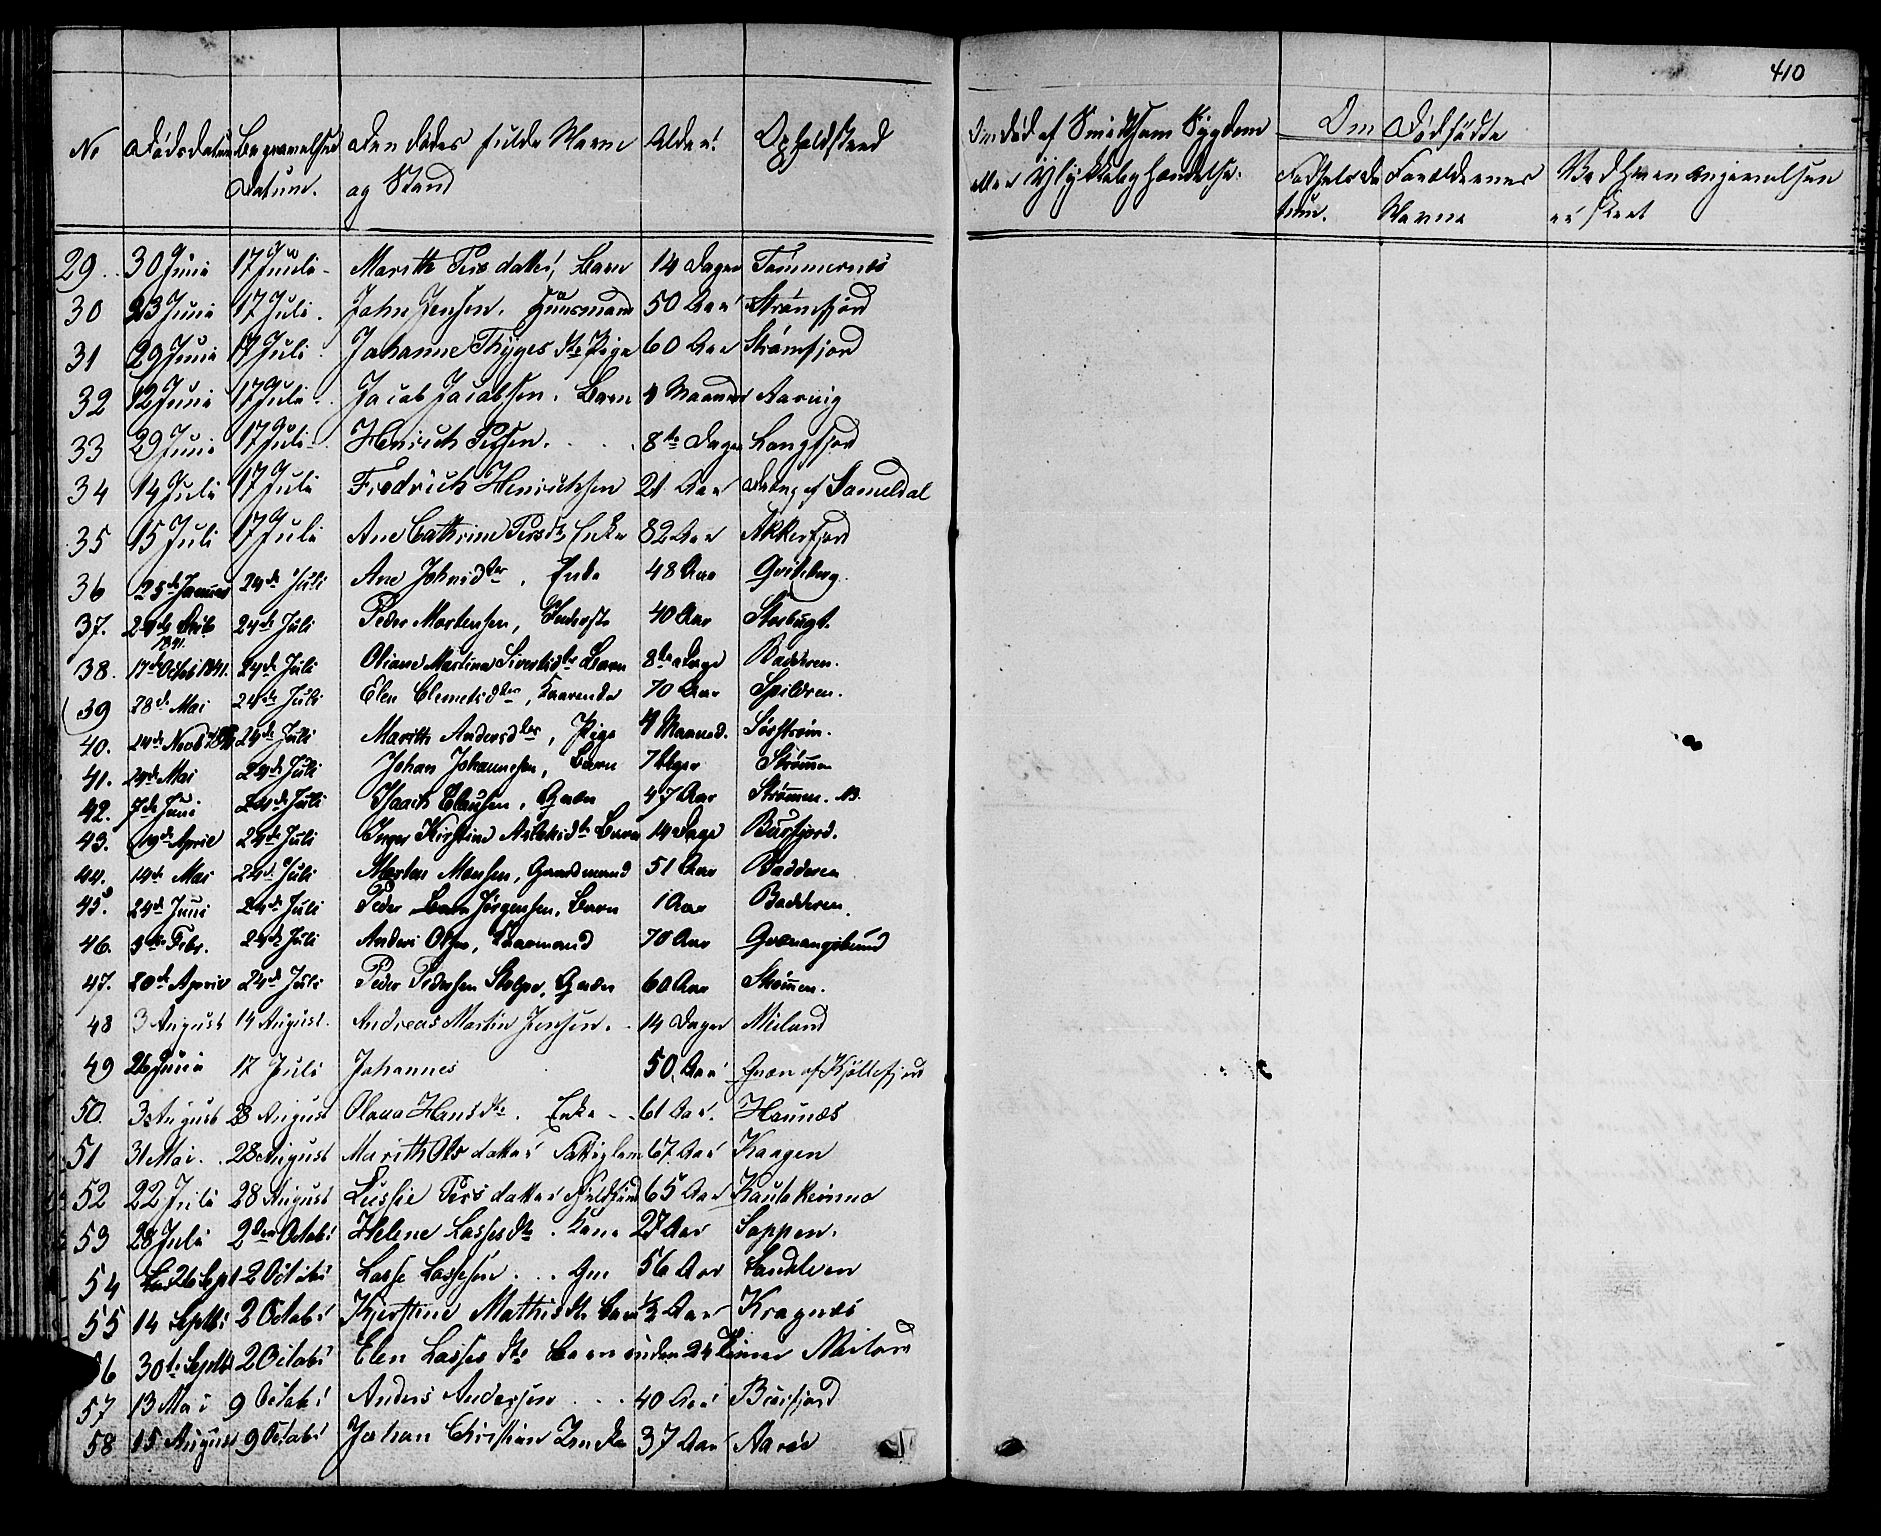 410
No Dødsdatum Begravelses Den dødes fulde Navn Alder Opholdsted Om død af Smitsom Sygdom Om Dødfødte
Datum. og Stand eller Ulykkelig Hændelse. Fødsels Da Forældrenes Ved hvem angivelsen
tum. Navne er skeet
29. 30 Juni 17 Juli Marith Pers datter, Barn 14 Dager Tømmernes
30 23 Juni 17 Juli. John Jensen. Huusmand 50 Aar Strømfjord
31 29 Juni 17 Juli Johanne Thyges dtr Pige 60 Aar Strømfjord
32 12 Juni 17 Juli Jacob Jacobsen. Barn 4 Maaneder Aarvig
33 29 Juni 17 Juli Henrich Persen. 8te Dager Langfjord
34 14 Juli 17 Juli Fredrich Henrichsen 21 Aar Dreng af Sameldal
35 15 Juli 17 Juli Ane Cathrine Persdtr Enke 82 Aar Akkerfjord
36 25de Januar 24de Juli Ane Johnsdtr, Enke 48 Aar Qvitberg.
37. 24de 1841. 24de Juli Peder Mortensen, Inderste 40 Aar Storbugt.
38. 17de Octob 1841. 24de Juli Oliane Martina Sivertsdtr Barn 8te Dage Badderen.
39 28de Mai 24de Juli Elen Clemetsdtr, 70 Aar Spildren.
40. 24de Novb 24de Juli Marith Andersdtr, Pige 4 Maaned. Sørstrøm.
41. 24de Mai 24de Juli Johan Johannesen, Barn 7 Uger Strømmen
42. 7de Juni 24de Juli Isaach Clausen, Qvæn 47 Aar Strømmen.
43. 19de April 24de Juli Inger Kirstine Aslaksdtr Barn 14 Dage Burfjord.
44. 14de Mai 24de Juli Morten Monsen, Gaardmand 51 Aar Badderen
45. 24de Juni 24de Juli Peder Jørgensen, Barn 1 Aar Badderen.
46. 3de Febr. 24de Juli Anders Olsen, 70 Aar Qvænangsbund
47. 20de April 24de Juli Peder Pedersen Stolpe, Qvæn 60 Aar Strømmen.
48 3 August 14 August. Andreas Martin Jensen. 14 Dager Meiland
49 26 Juni 17 Juli Johannes 50 Aar Qvæn af Kjøllefjord
50. 3 August 28 August Olava Hans dtr. Enke 61 Aar. Haunæs
51 31 Mai. 28 August Marith Ols datter Fattiglem 67 Aar Kaagen
52 22 Juli 28 August Lussie Pers datter 65 Aar Kautokeinno
53 28 Juli 2den Octobr Helene Lasses dtr. Kone 27 Aar Sappen.
54 26 Sept 2 Octobr Lasse Lassesen Gm 56 Aar Sandleven
55 14 Septbr 2 Octobr Kjerstine Mathis dtr Barn 1/2 Aar Kragenæs
56 30te Septbr 2 Octobr Elen Lasses dtr Barn under 24 Timer Meiland
57 13 Mai 9 Octobr Anders Andersen 40 Aar Burfjord
58 15 August 9 Octobr Johan Christian 37 Aar Aarøe